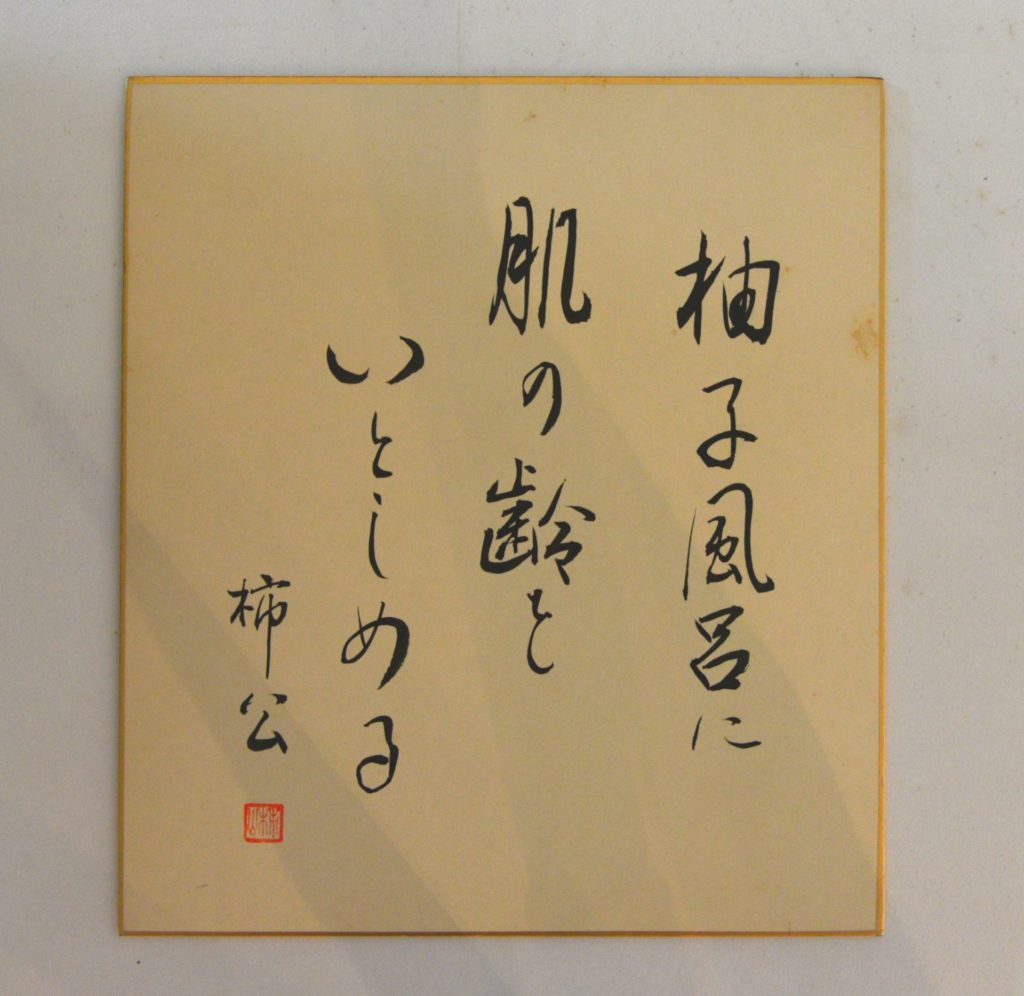 柚子風呂に
肌の齢を
いとしめる
柿公